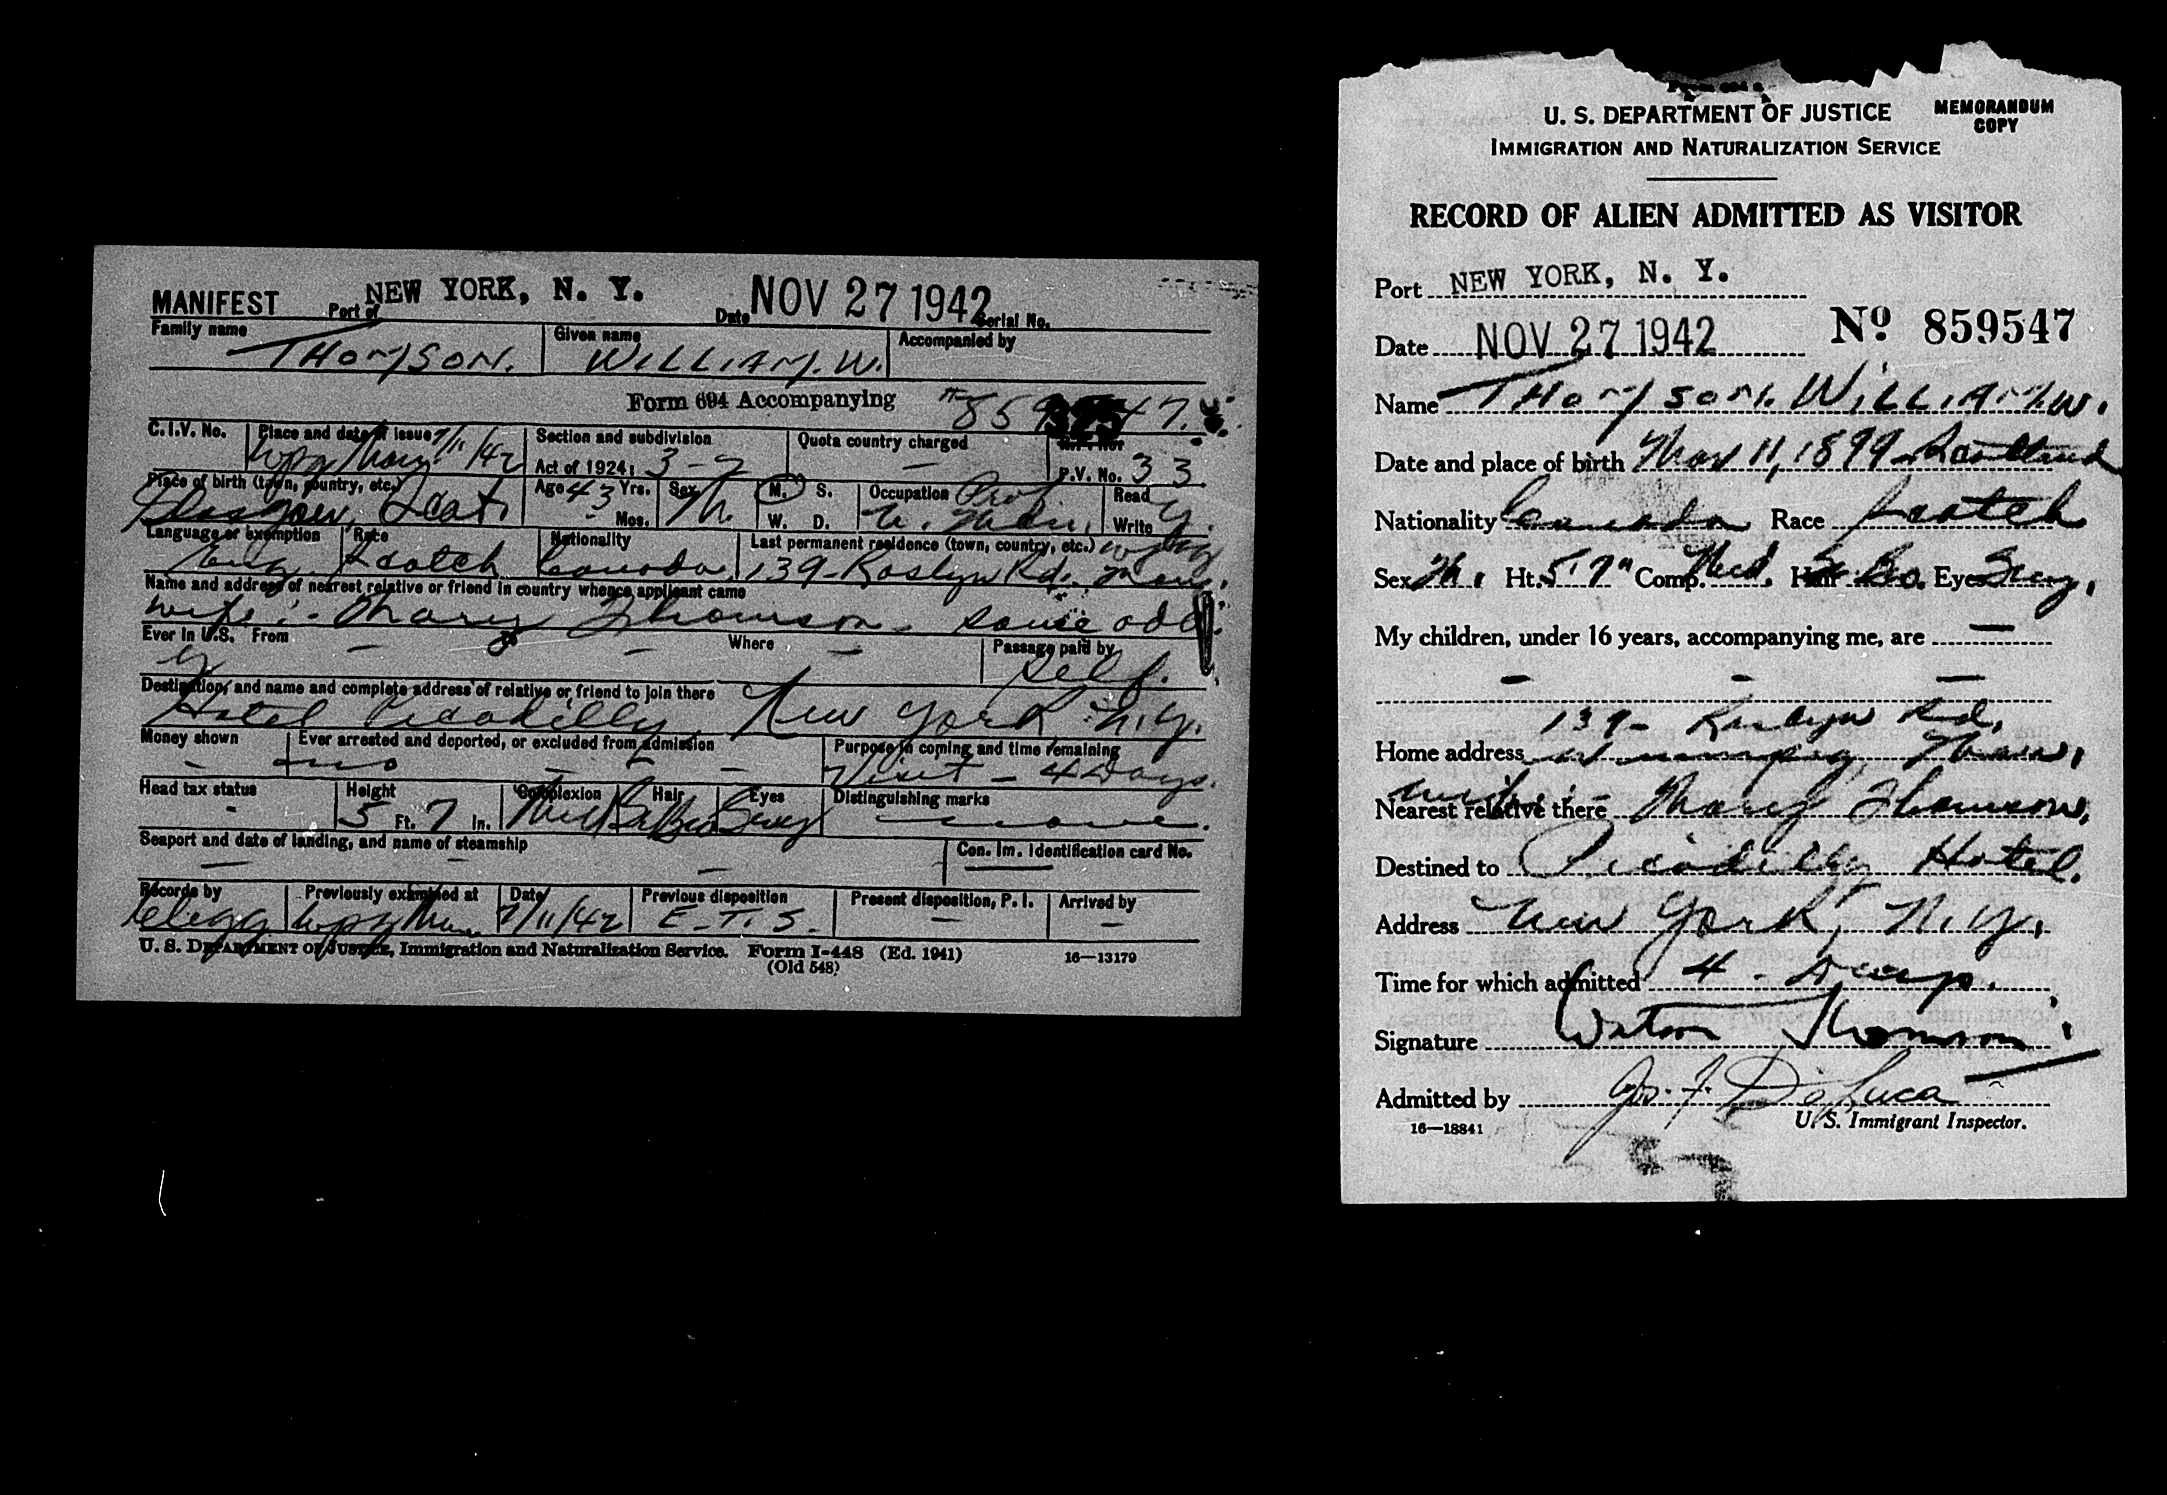 MANIFEST Port of NEW YORK, N. Y. Date NOV 27 1942 Serial No.
Family name Given name Accompanied by
THOMSON. WILLIAM. W.
Form 694 Accompanying 859547.
C.I.V. No. Place and date of issue 7/11/42 Section and subdivision Quota country charged
Wpg Man. Act of 1924: 3-2 — P.V. No. 33
Place of birth (town, country, etc.) Age 43 Yrs. Sex M. S. Occupation Prof. Read
Glasgow, Scot. - Mos. M. W. D. U. Man. Write Y.
Language or exemption Race Nationality Last permanent residence (town, country, etc.) Wpg
Eng Scotch Canada 139-Roslyn Rd. Man.
Name and address of nearest relative or friend in country whence applicant came
wife:- Mary Thomson - same add.
Ever in U.S. From — to — Where — Passage paid by
y Self.
Destination, and name and complete address of relative or friend to join there
Hotel Picadilly, New York N.Y.
Money shown Ever arrested and deported, or excluded from admission Purpose in coming and time remaining
- no - - - Visit - 4 Days.
Head tax status Height Complexion Hair Eyes Distinguishing marks
- 5 Ft. 7 In. Med Bro Grey none.
Seaport and date of landing, and name of steamship Con. Im. Identification card No.
— — — —
Records by Previously examined at Date Previous disposition Present disposition, P. I. Arrived by
Clegg Wpg Man 7/11/42 E. T. S. — —
U. S. DEPARTMENT OF JUSTICE, Immigration and Naturalization Service. Form I-448 (Ed. 1941) 16—13179
(Old 548)
U. S. DEPARTMENT OF JUSTICE MEMORANDUM
COPY
IMMIGRATION AND NATURALIZATION SERVICE
RECORD OF ALIEN ADMITTED AS VISITOR
Port NEW YORK, N. Y.
Date NOV 27 1942 No 859547
Name THOMSON. WILLIAM. W.
Date and place of birth Nov 11, 1899 - Scotland
Nationality Canada Race Scotch
Sex M. Ht. 5'7" Comp. Med. Hair Bro. Eyes Grey.
My children, under 16 years, accompanying me, are —
- - —
139- Roslyn Rd.
Home address Winnipeg, Man.
wife:-
Nearest relative there Mary Thomson,
Destined to Picadilly Hotel.
Address New York, N.Y.
Time for which admitted 4 - Days.
Signature Watson Thomson
Admitted by Jos. F. DeLuca
16—18841 U. S. Immigrant Inspector.